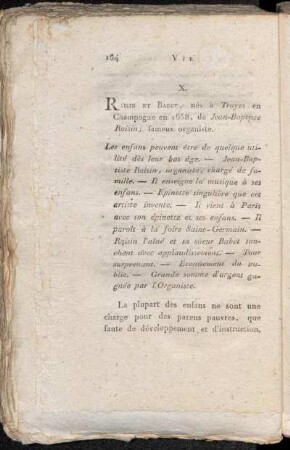 184 VIE
X.
RAISIN ET BABET, nés à Troyes en
Champagne en 1658, de Jean-Baptiste
Raisin, fameux organiste.
Les enfans peuvent être de quelque uti-
lité dès leur bas âge. — Jean-Bap-
tiste Raisin, organiste, chargé de fa-
mille. — Il enseigne la musique à ses
enfans. — Epinette singulière que cet
artiste invente. — Il vient à Paris
avec son épinette et ses enfans. — Il
paroît à la foire Saint-Germain. —
Raisin l'aîné et sa sœur Babet tou-
chent avec applaudissement. — Tour
surprenant. — Etonnement du pu-
blic. — Grande somme d'argent ga-
gnée par l'Organiste.
La plupart des enfans ne sont une
charge pour des parens pauvres, que
faute de développement et d'instruction,